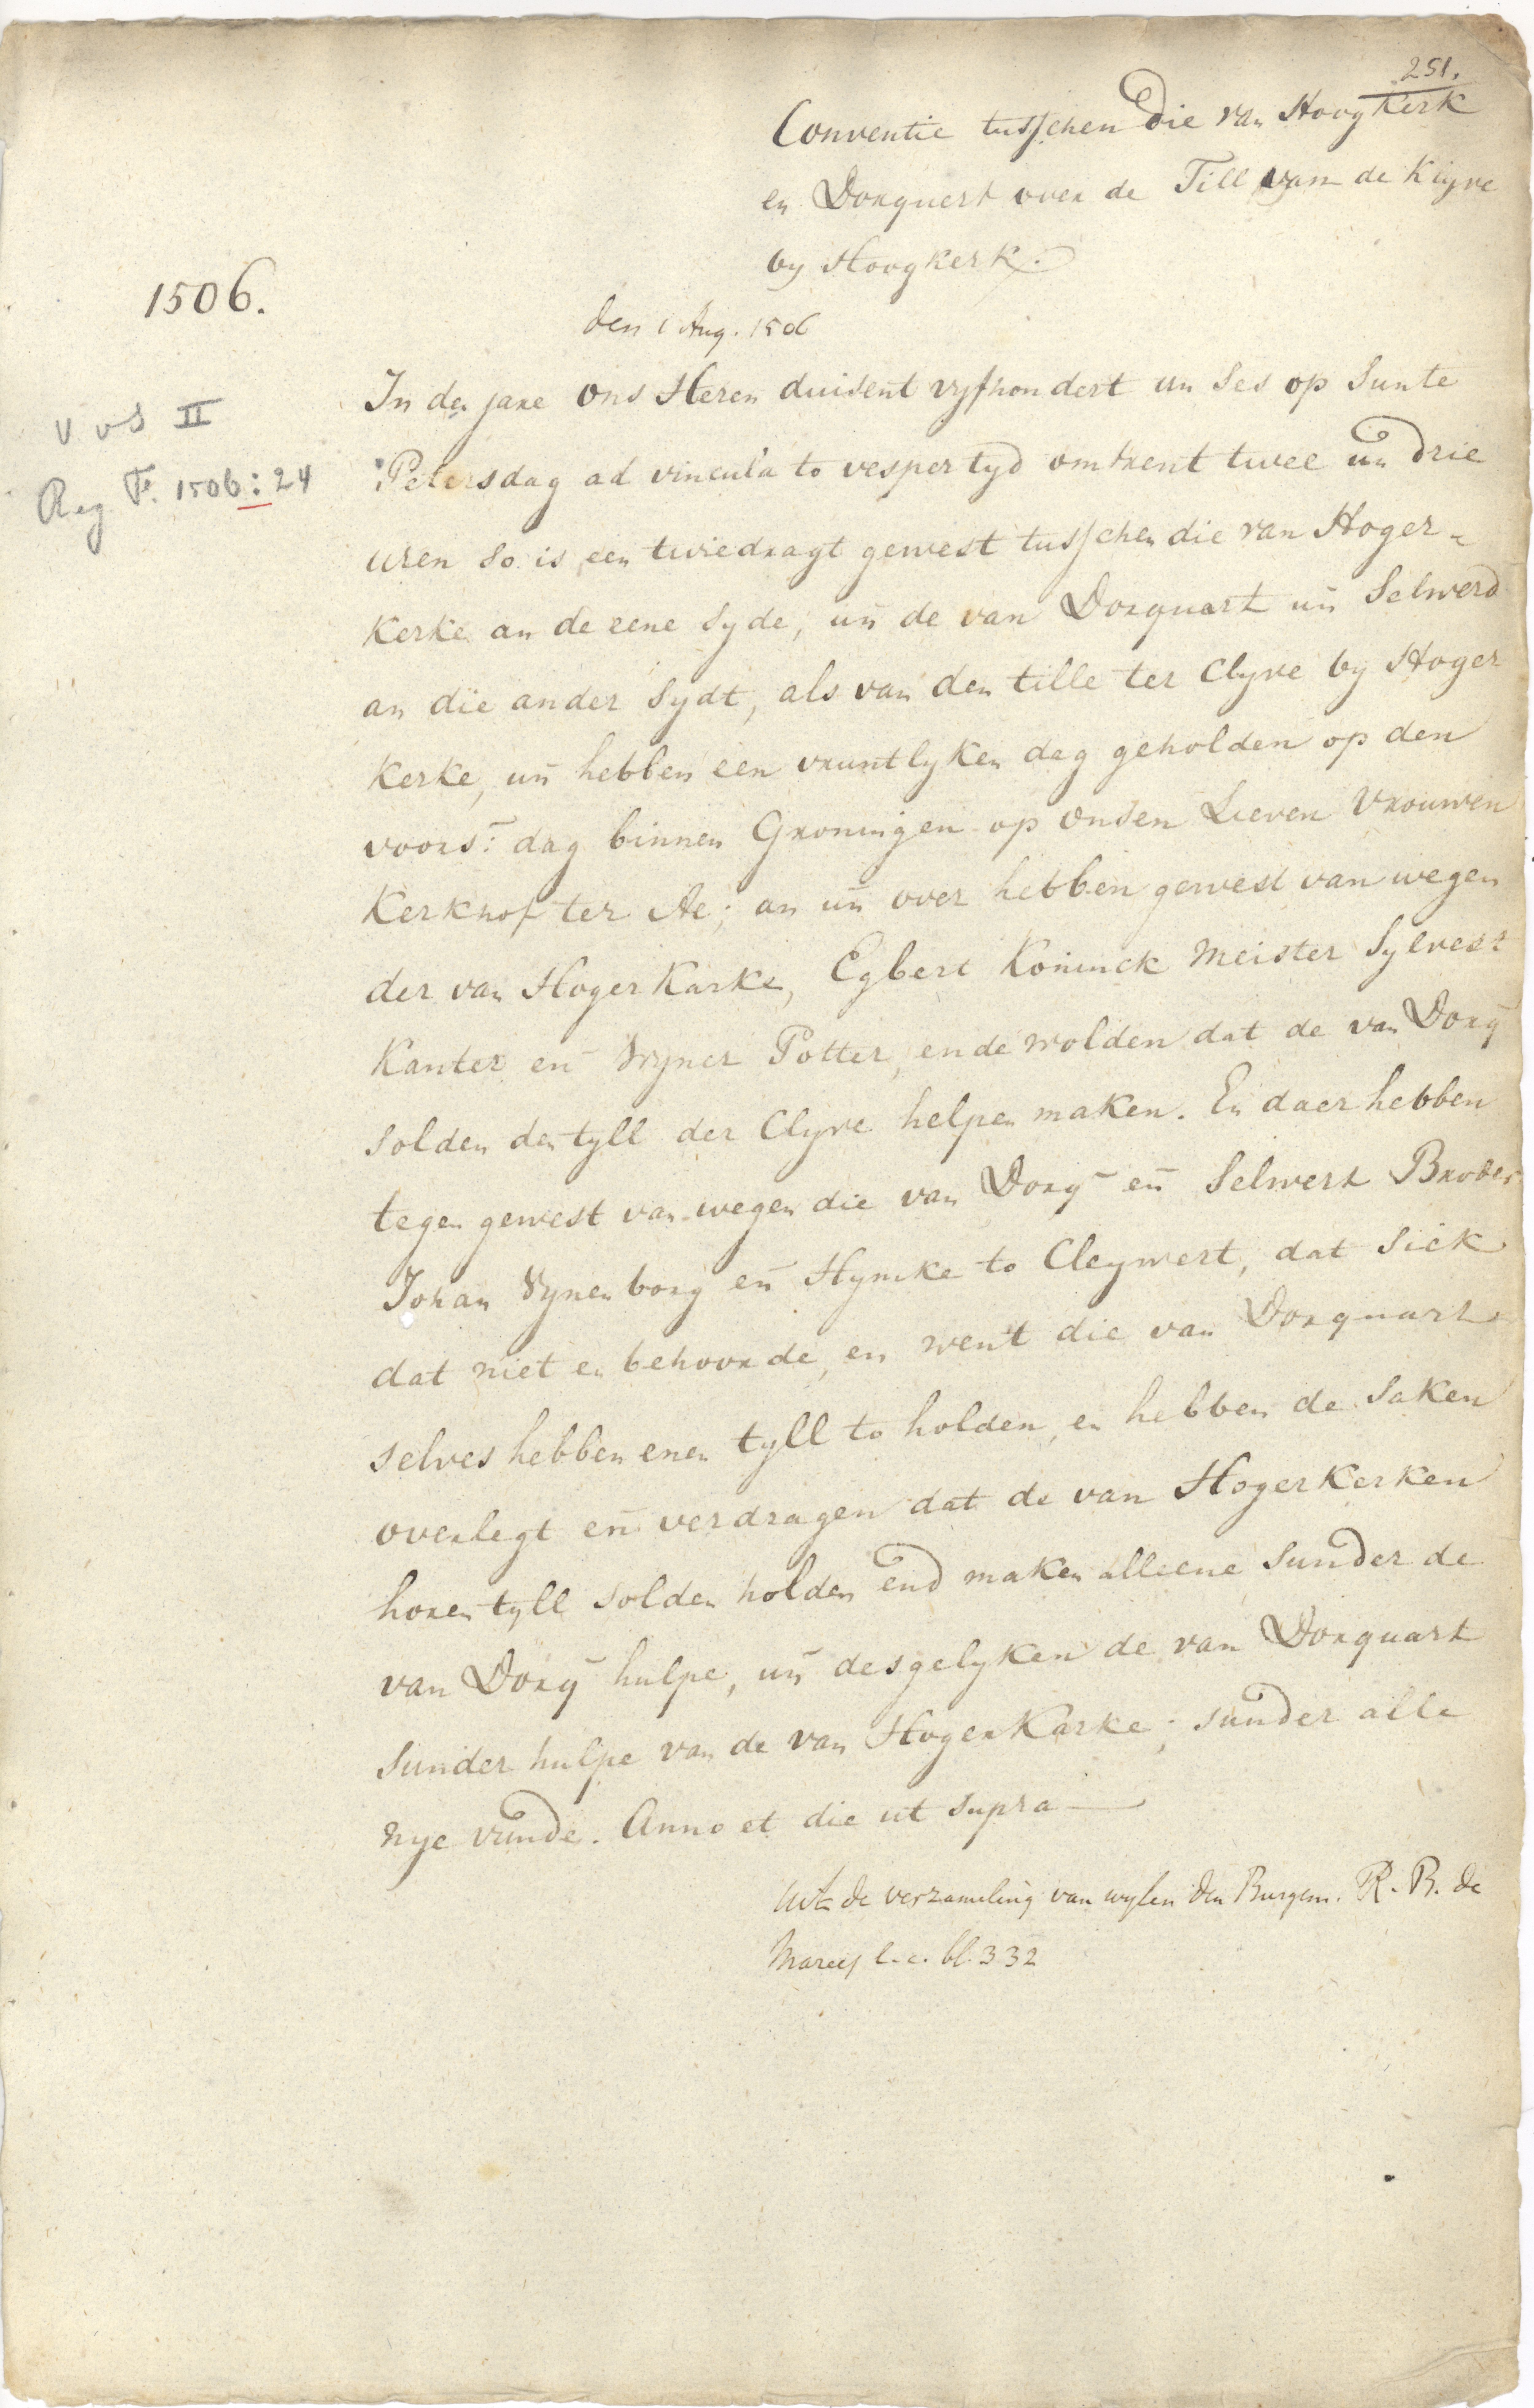 251.
Conventie tusschen die van Hoogkerk
en Dorquert over de Till van de Klyve
by Hoogkerk.
1506.
den 1 Aug. 1506
In den jare ons Heren duisent vyfhondert un ses op Sunte
v v S II
Petersdag ad vincula to vespertyd omtrent twee un̄ drie
Reg F. 1506: 24
uren so is een twiedragt gewest tusschen die van Hoger-
kerke an de eene syde, un̄ de van Dorquart un̄ Selwerd
an die ander sydt, als van den tille ter Clyve by Hoger
kerke, un̄ hebben een vruntlyken dag geholden op den
voors: dag binnen Groningen op onsen Lieven Vrouwen
Kerkhof ter Ae; an un̄ over hebben gewest van wegen
der van Hogerkarke, Egbert Koninck Meister Sylvest
Kanter en̄ Wyner Potter, ende wolden dat de van Dorq̄
solden den tyll der Clyve helpen maken. En daer hebben
tegen gewest van wegen die van Dorq̄ en̄ Selwert Broder
Johan Vynenborg en̄ Hymke to Cleywert, dat sick
dat niet en behoorde, en went die van Dorquart
selves hebben enen tyll to holden, en hebben de saken
overlegt en̄ verdragen dat de van Hogerkerken
horen tyll solden holden end maken alleene sunder de
van Dorq̄ hulpe, un̄ desgelyken de van Dorquart
sunder hulpe van de van Hogerkarke; sunder alle
nye vunde. Anno et die ut supra —
Uit de verzameling van wylen den Burgem. R. B. de
Marees l.c. bl. 332